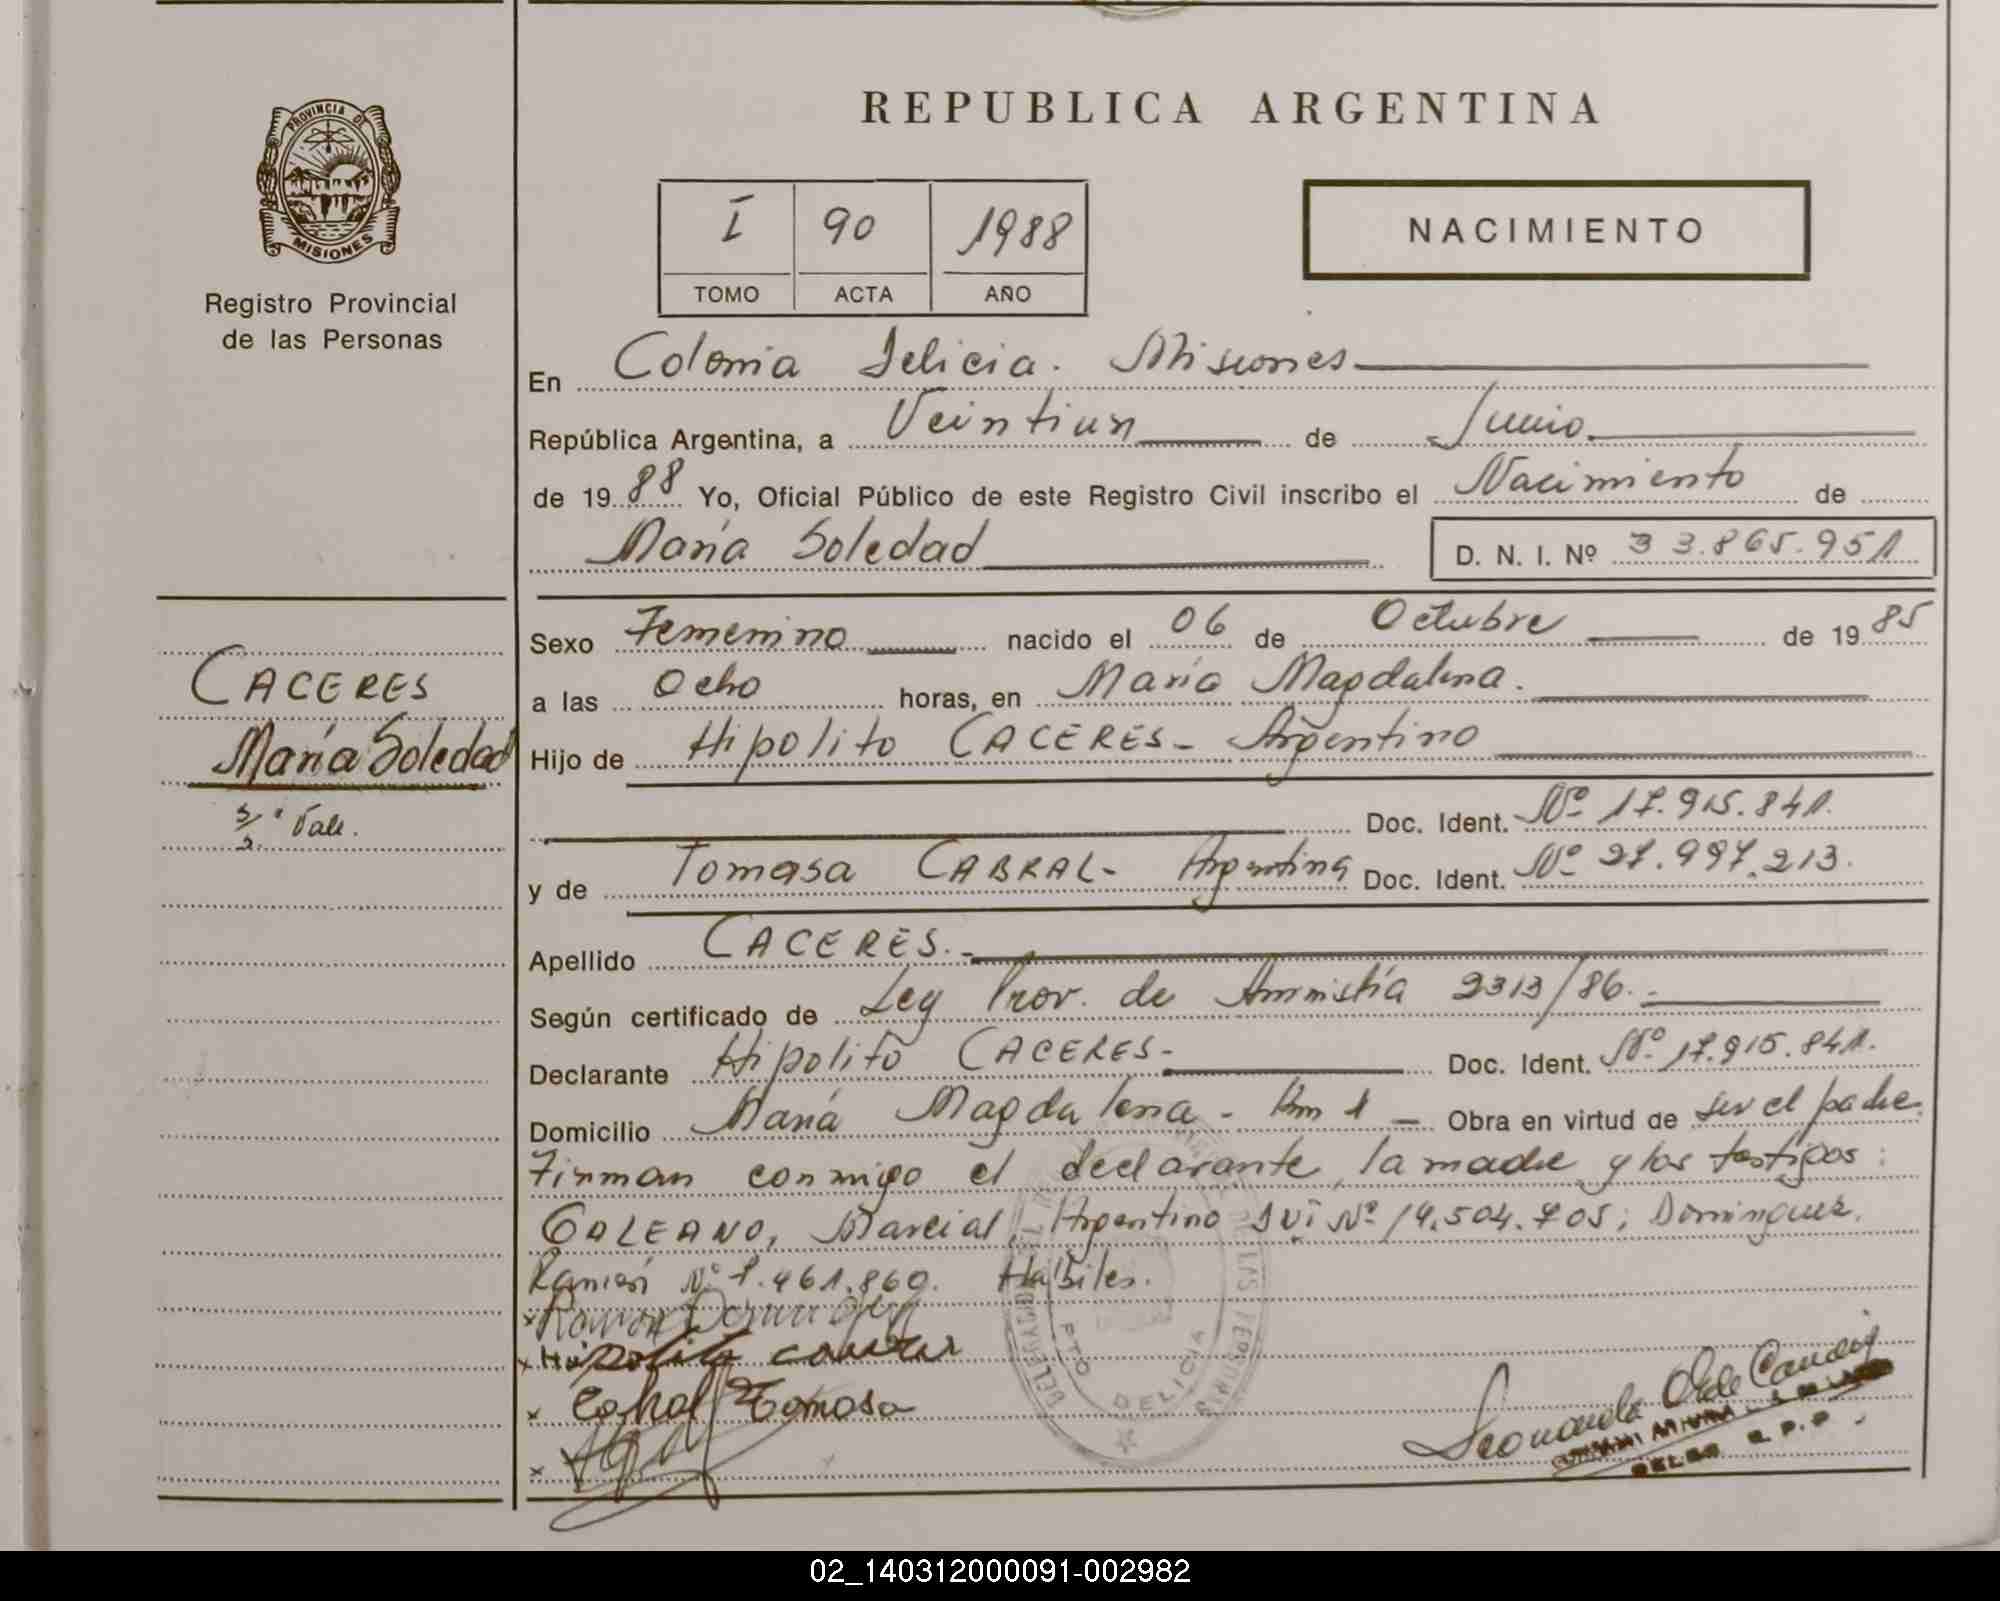 REPUBLICA ARGENTINA
PROVINCIA DE
MISIONES
Registro Provincial
de las Personas
I 90 1988
TOMO ACTA AÑO
NACIMIENTO
En Colonia Delicia. Misiones
República Argentina, a Veintiun de Junio
de 1988 Yo, Oficial Público de este Registro Civil inscribo el Nacimiento de
María Soledad D. N. I. Nº 33.865.951
CACERES
María Soledad
Vale.
Sexo Femenino nacido el 06 de Octubre de 1985
a las Ocho horas, en María Magdalena.
Hijo de Hipolito CACERES - Argentino
Doc. Ident. Nº 17.915.841.
y de Tomasa CABRAL - Argentina Doc. Ident. Nº 27.997.213.
Apellido CACERES.-
Según certificado de Ley Prov. de Amnistía 2313/86.-
Declarante Hipolito CACERES- Doc. Ident. Nº 17.915.841.
Domicilio María Magdalena - Km 1 - Obra en virtud de ser el padre.
Firman conmigo el declarante, la madre y los testigos:
GALEANO, Marcial, Argentino DNI Nº 14.504.705; Dominguez,
Ramón Nº 7.461.860. Habiles.
x Ramon Dominguez
x Hipolito caceres
x Cabral Tomasa
x
PTO DELICIA
DE LAS PERSONAS
R.P.P.
02_140312000091-002982